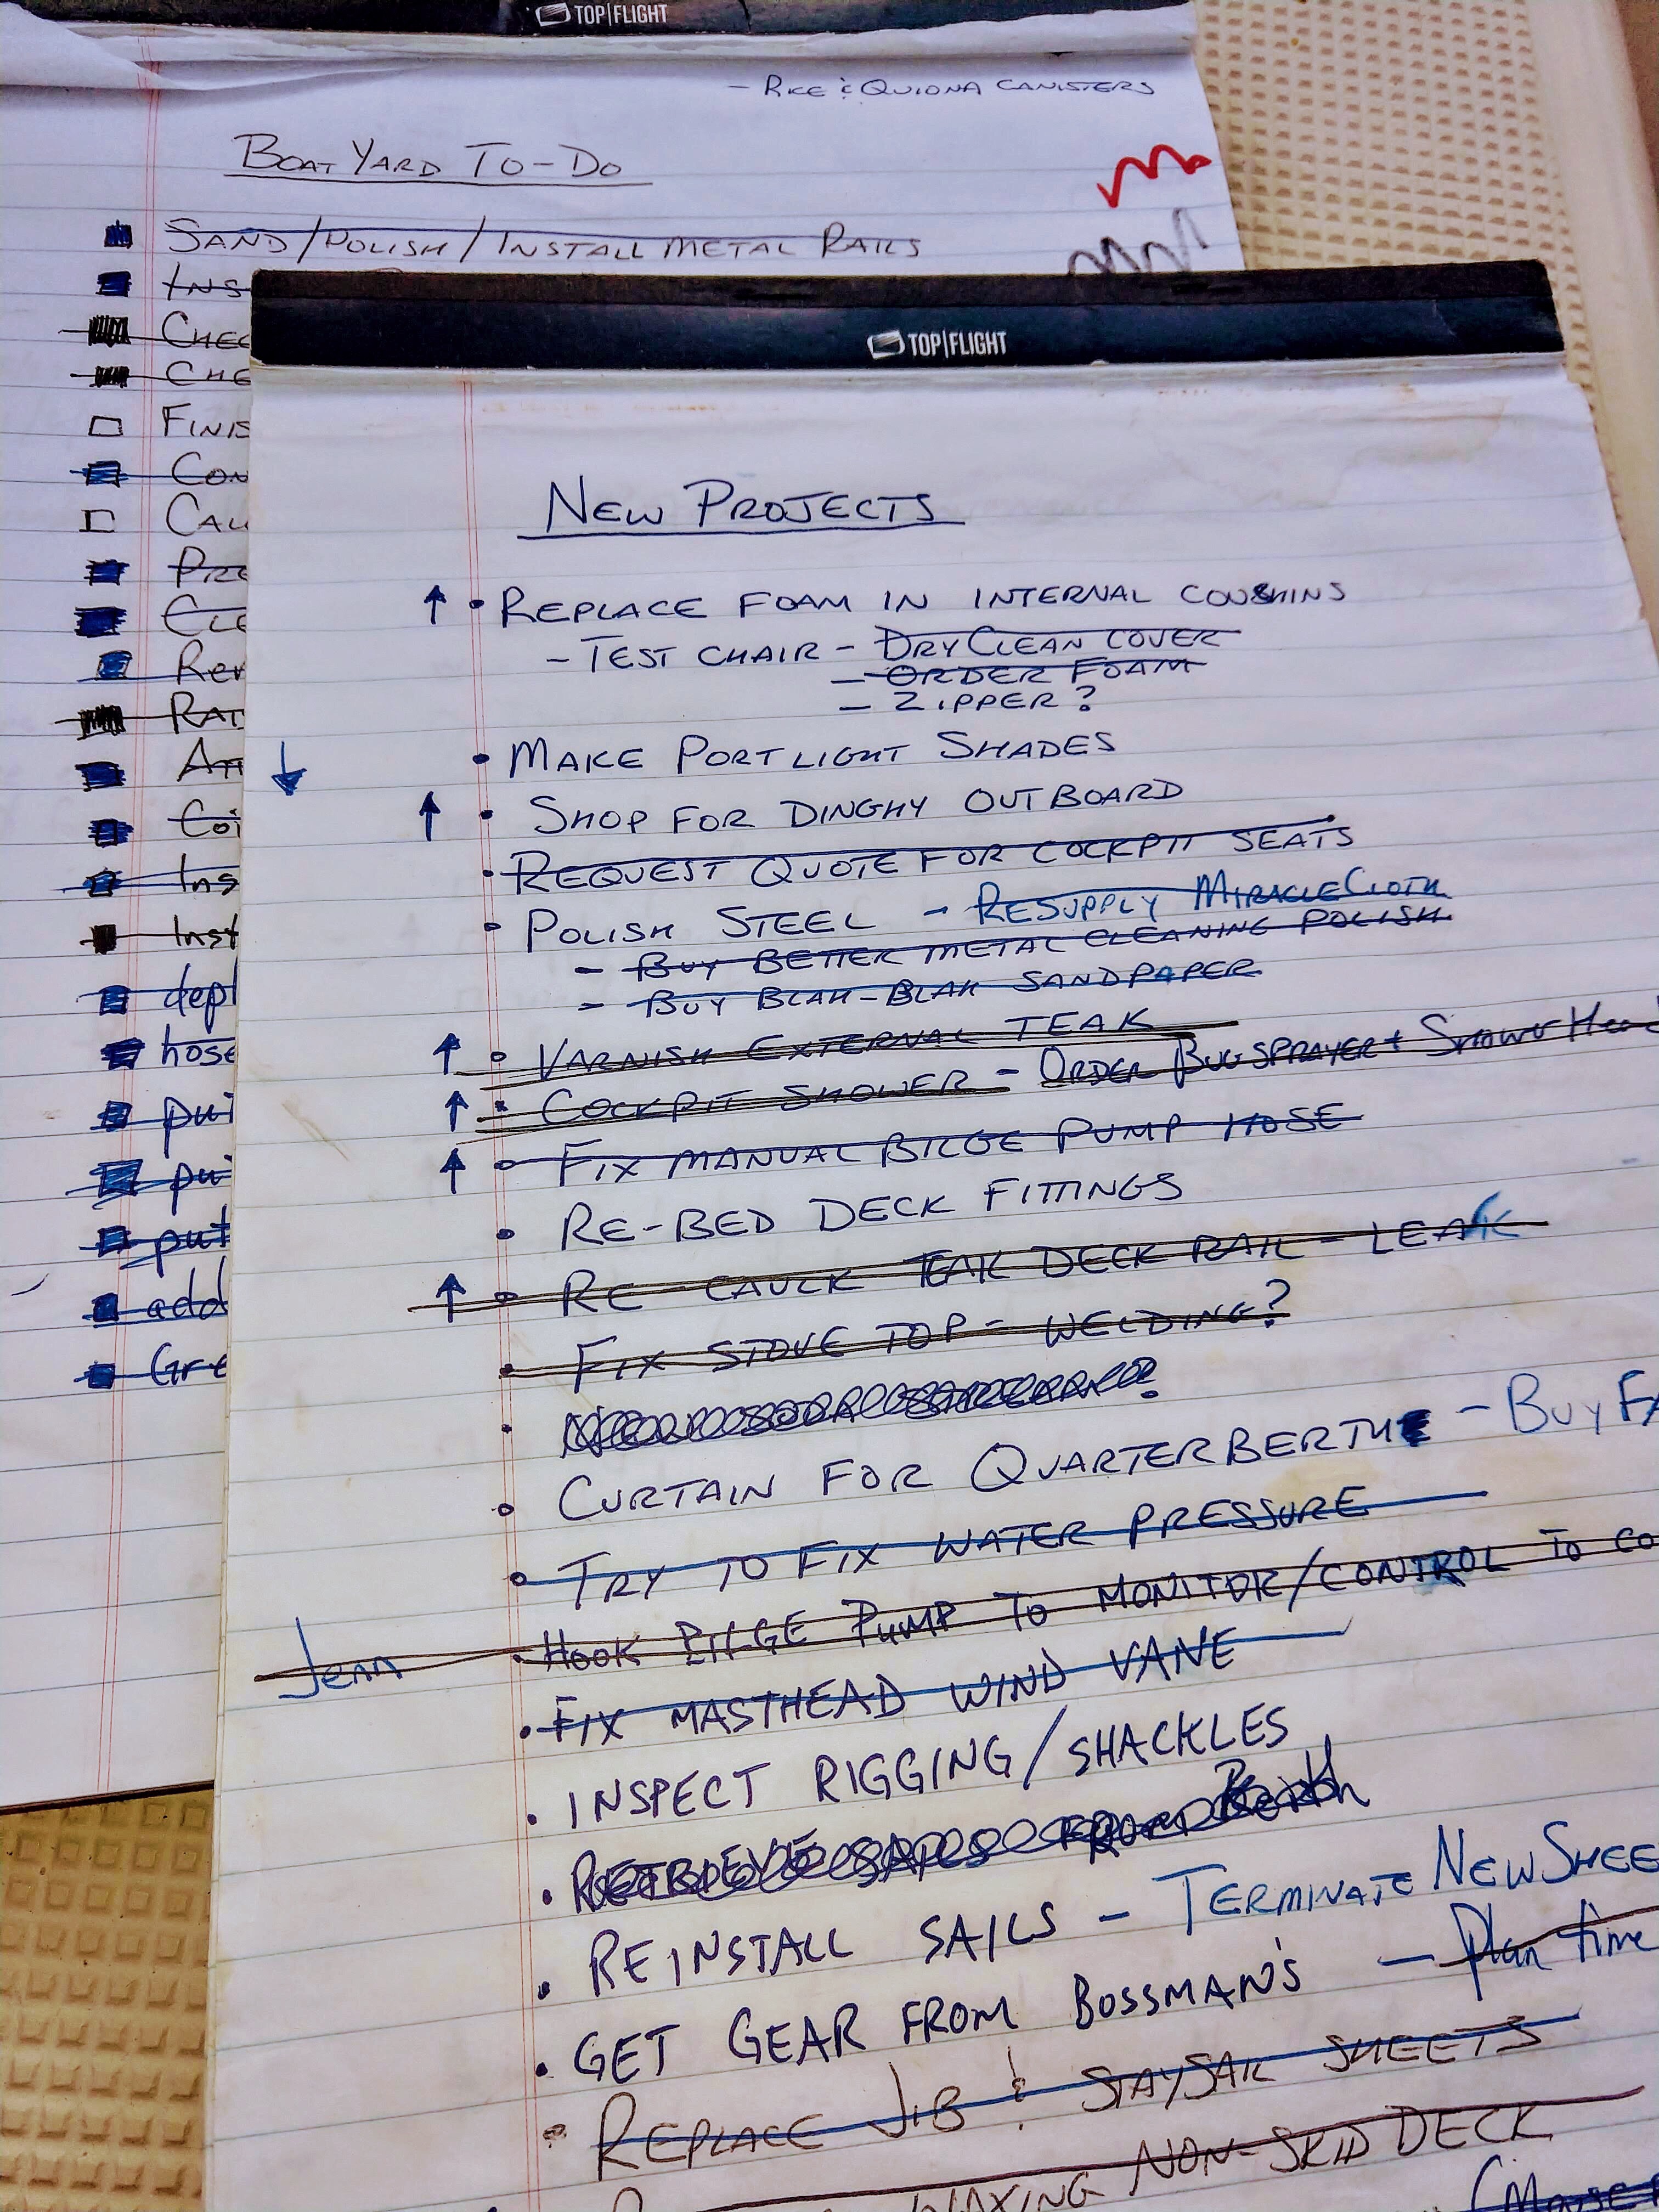 TOP|FLIGHT
- RICE & QUIONA CANISTERS
BOAT YARD TO-DO
SAND/POLISH/INSTALL METAL RAILS
INS
CHEC
CHE
FINIS
CON
CAL
PRE
CLE
Rev
RAT
ATT
Coi
Ins
Inst
depl
hose
pui
pui
put
add
Gre
TOP|FLIGHT
NEW PROJECTS
↑ • REPLACE FOAM IN INTERNAL COUSHINS
- TEST CHAIR - DRY CLEAN COVER
- ORDER FOAM
- ZIPPER?
↓ • MAKE PORTLIGHT SHADES
↑ • SHOP FOR DINGHY OUTBOARD
• REQUEST QUOTE FOR COCKPIT SEATS
• POLISH STEEL - RESUPPLY MIRACLE CLOTH
- BUY BETTER METAL CLEANING POLISH
- BUY BLAH-BLAH SANDPAPER
↑ • VARNISH EXTERNAL TEAK
↑ • COCKPIT SHOWER - ORDER BUG SPRAYER + SHOWER HEAD
↑ • FIX MANUAL BILGE PUMP HOSE
• RE-BED DECK FITTINGS
↑ • RE-CAULK TEAK DECK RAIL - LEAK
• FIX STOVE TOP - WELDING?
• NEW SODA STREAM?
• CURTAIN FOR QUARTERBERTH - BUY FA
• TRY TO FIX WATER PRESSURE
Jenn • HOOK BILGE PUMP TO MONITOR/CONTROL TO CO
• FIX MASTHEAD WIND VANE
• INSPECT RIGGING/SHACKLES
• RETRIEVE SAILS FROM Berth
• REINSTALL SAILS - TERMINATE NEW SHEE
• GET GEAR FROM BOSSMAN'S - Plan time
• REPLACE JIB & STAYSAIL SHEETS
WAXING NON-SKID DECK